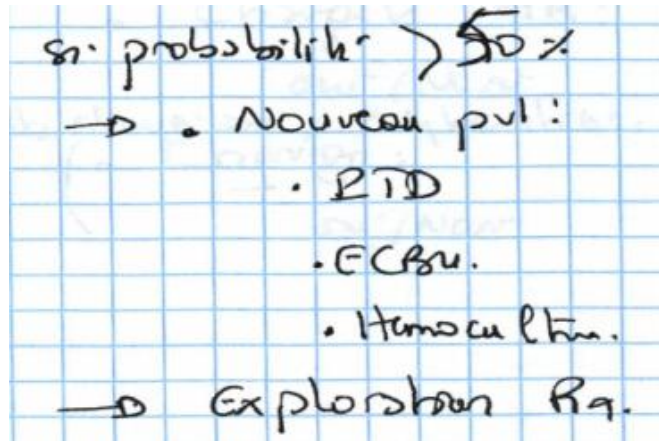 si probabilité > 50 %
→ • Nouveau pvl:
• PTD
• ECBU.
• Hemoculture.
→ Exploration Rq.